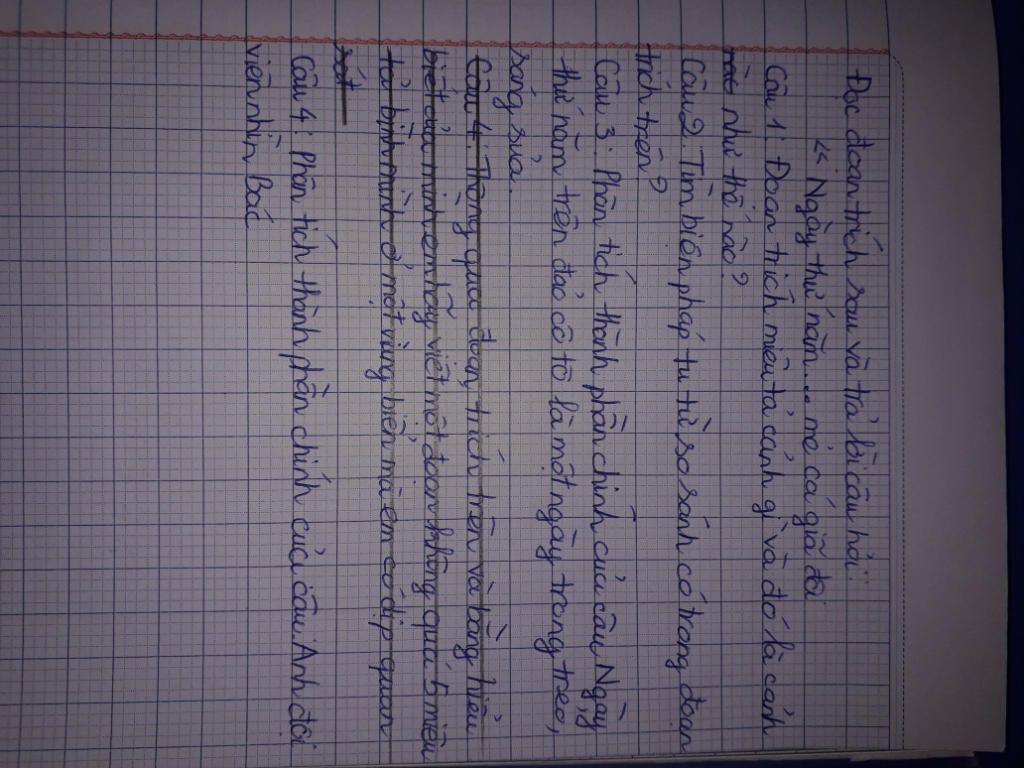 Đọc đoạn trích sau và trả lời câu hỏi:
" Ngày thứ năm ... mẻ cá giã đôi
Câu 1: Đoạn trích miêu tả cảnh gì và đó là cảnh
như thế nào?
Câu 2. Tìm biện pháp tu từ so sánh có trong đoạn
trích trên?
Câu 3: Phân tích thành phần chính của câu, Ngày
thứ năm trên đảo cô tô là một ngày trong trẻo,
sáng sủa.
Câu 4: Thông qua đoạn trích trên và bằng hiểu
biết của mình em hãy viết một đoạn không quá 5 miêu
tả bình minh ở một vùng biển mà em có dịp quan
sát
Câu 4: Phân tích thành phần chính của câu: Anh đội
viên nhìn Bác